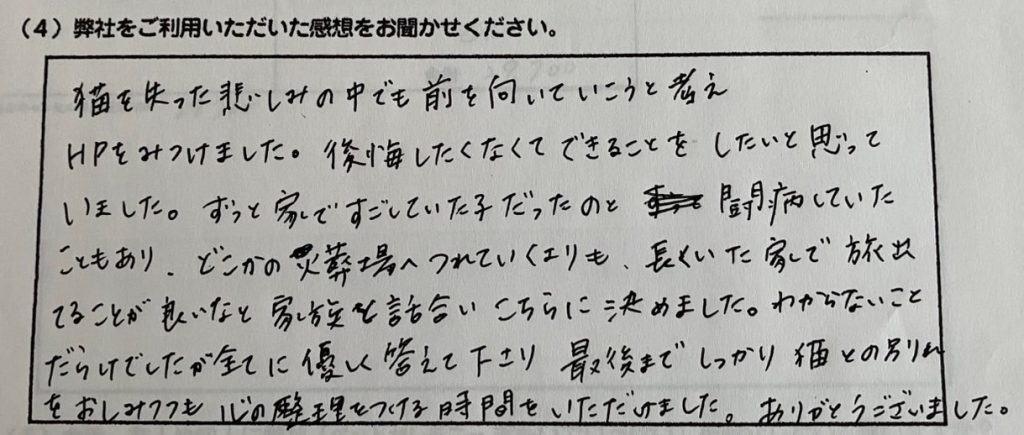 （4）弊社をご利用いただいた感想をお聞かせください。
猫を失った悲しみの中でも前を向いていこうと考え
HPをみつけました。後悔したくなくてできることをしたいと思って
いました。ずっと家ですごしていた子だったのと 闘病していた
こともあり、どこかの火葬場へつれていくよりも、長くいた家で旅出
てることが良いなと家族と話合いこちらに決めました。わからないこと
だらけでしたが全てに優しく答えて下さり 最後までしっかり猫との別れ
をおしみつつも心の整理をつける時間をいただけました。ありがとうございました。